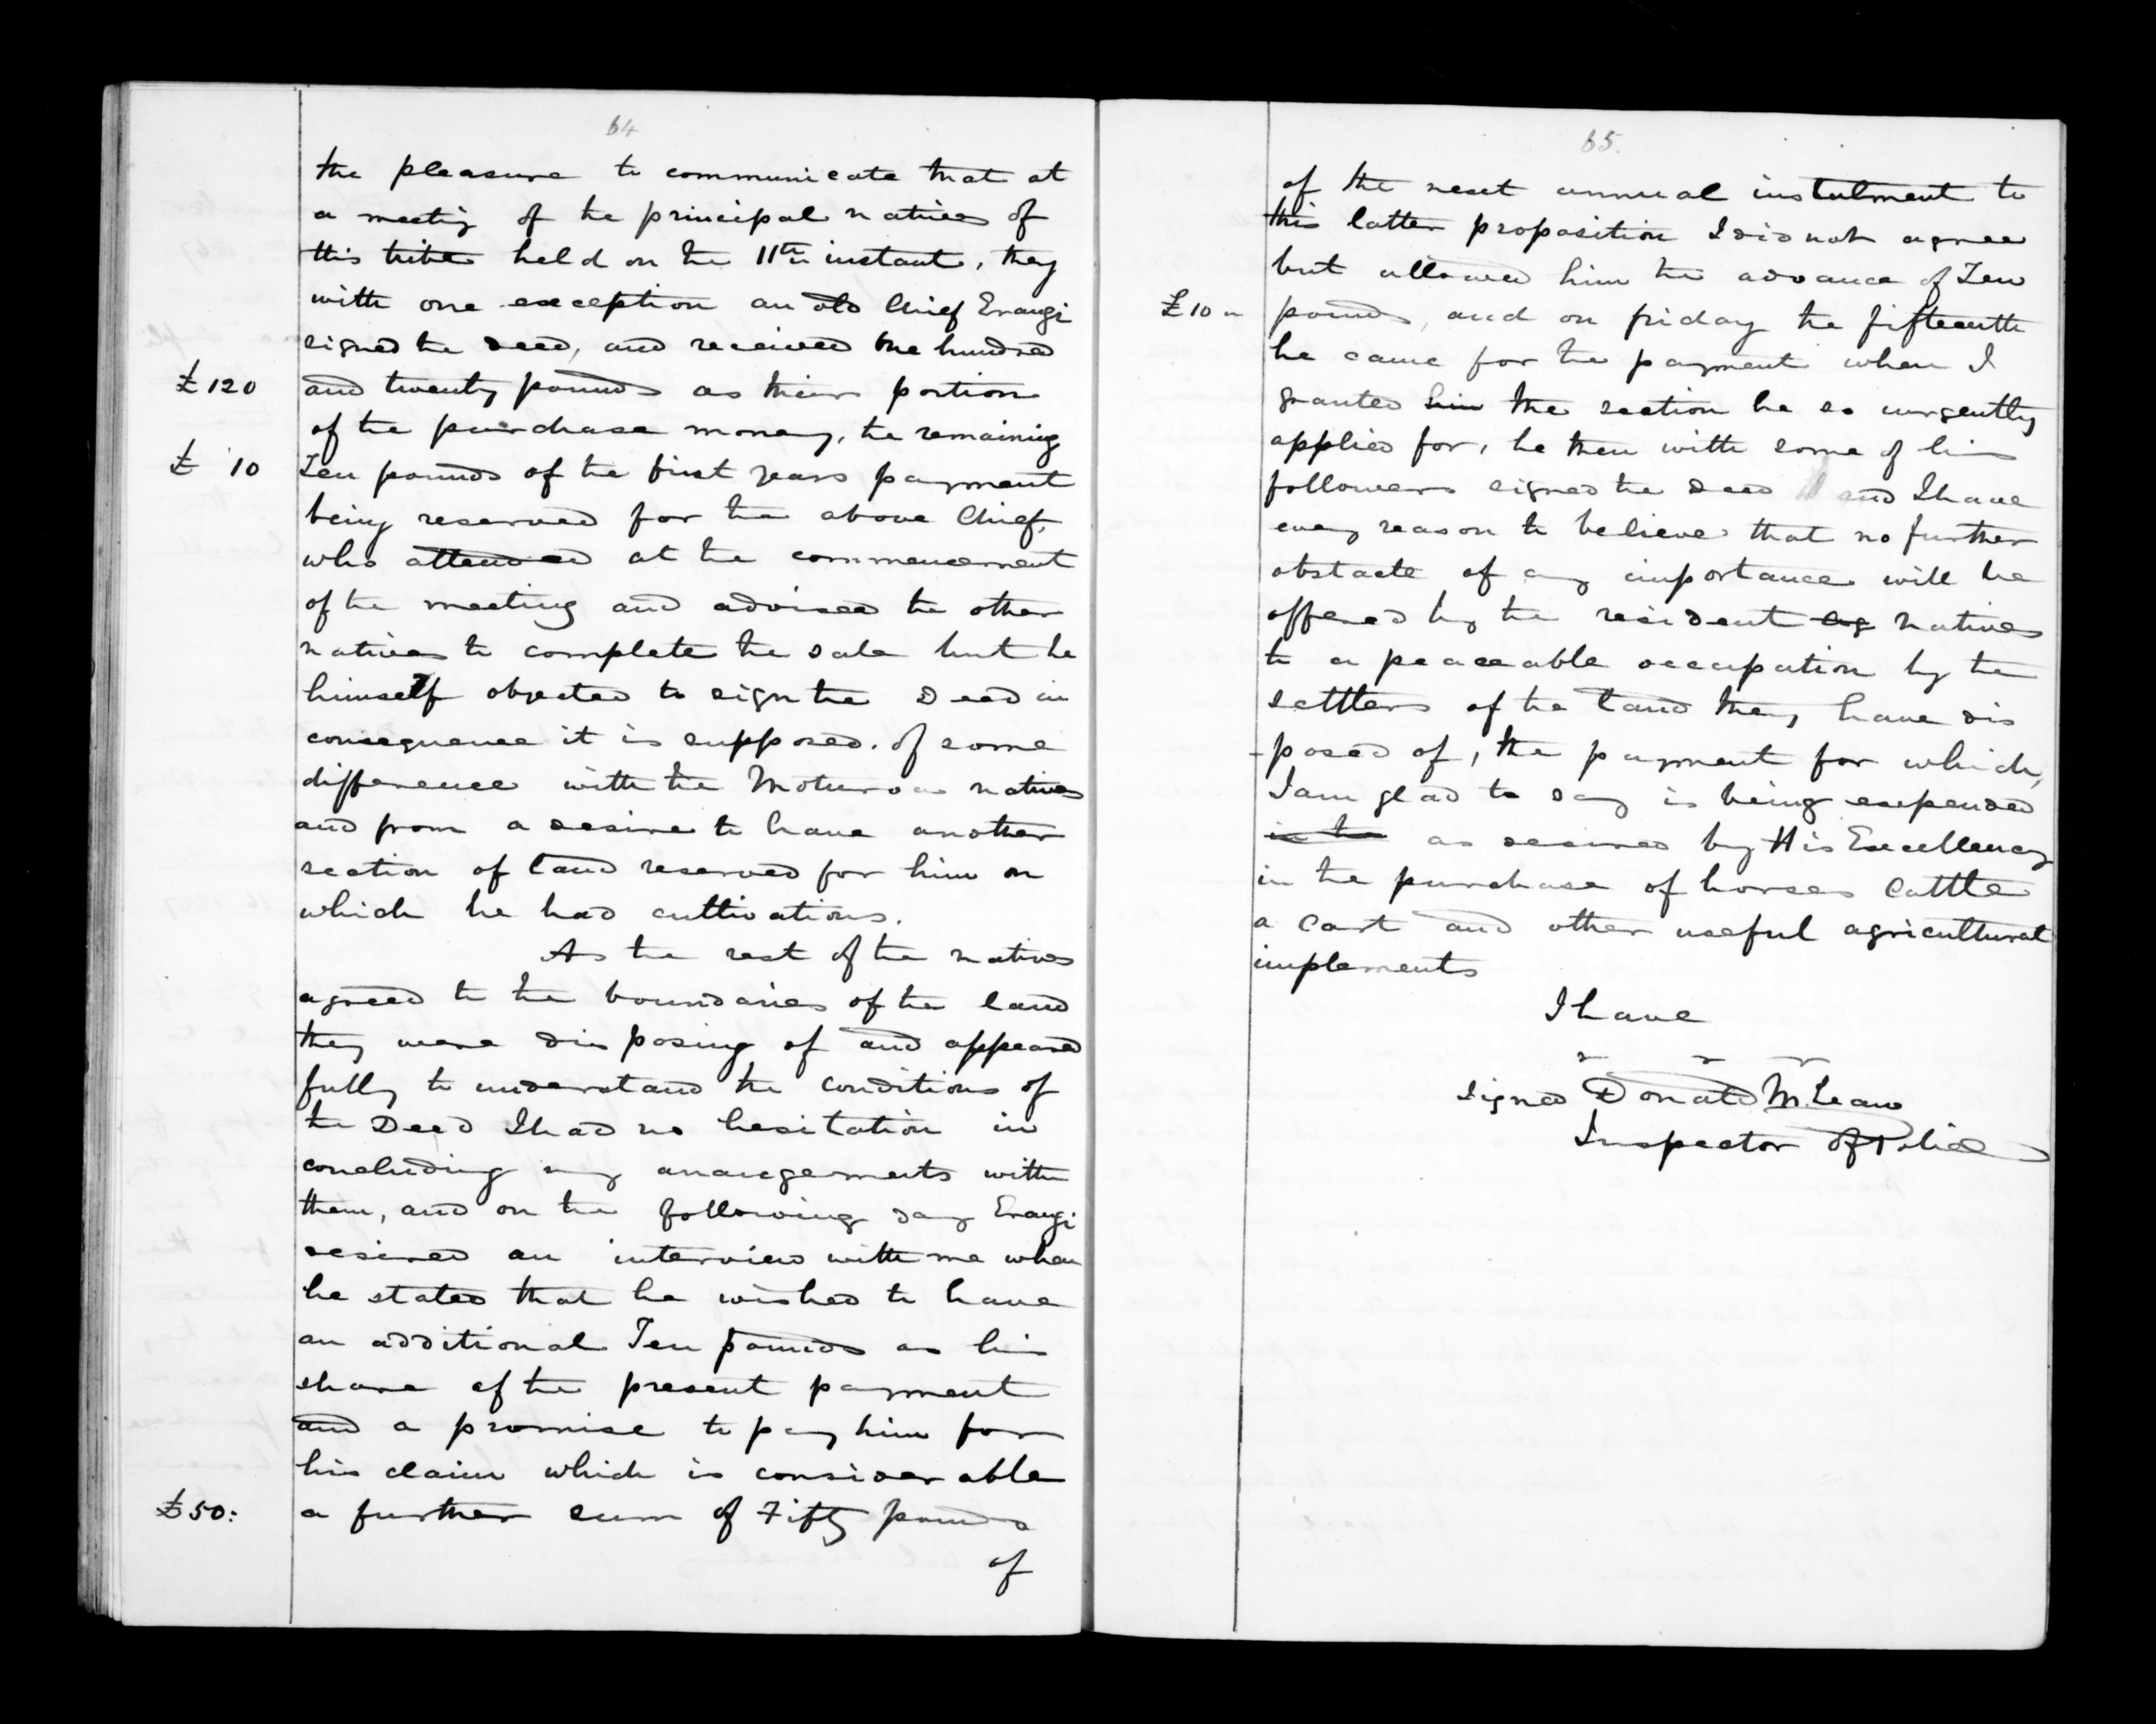 64
the pleasure to communicate that at
a meeting of the principal natives of
this tribe held on the 11th instant, they
with one exception an old Chief Erangi
signed the deed, and received One hundred
£120 and twenty pounds as their portion
of the purchase money, the remaining
£ 10 Ten pounds of the first years payment
being reserved for the above Chief,
who attended at the commencement
of the meeting and advised the other
natives to complete the sale but he
himself objected to sign the Deed in
consequence it is supposed. of some
difference with the Moturoa natives
and from a desire to have another
section of land reserved for him on
which he had cultivations.
As the rest of the natives
agreed to the boundaries of the land
they were disposing of and appeared
fully to understand the conditions of
the Deed I had no hesitation in
concluding my arrangements with
them, and on the following day Erangi
desired an interview with me when
he stated that he wished to have
an additional Ten pounds as his
share of the present payment
and a promise to pay him for
his claim which is considerable
£50: a further sum of Fifty pounds
of
65.
of the next annual instalment to
this latter proposition I did not agree
but allowed him the advance of Ten
£10 " pounds, and on friday the fifteenth
he came for the payment when I
granted him the section he so urgently
applied for, he then with some of his
followers signed the deed and I have
every reason to believe that no further
obstacle of any importance will be
offered by the resident natives
to a peaceable occupation by the
settlers of the land they have dis
-posed of, the payment for which,
I am glad to say is being expended
in the as desired by His Excellency
in the purchase of horses Cattle
a Cart and other useful agricultural
implements
I have
" " "
Signed Donald McLean
Inspector of Police